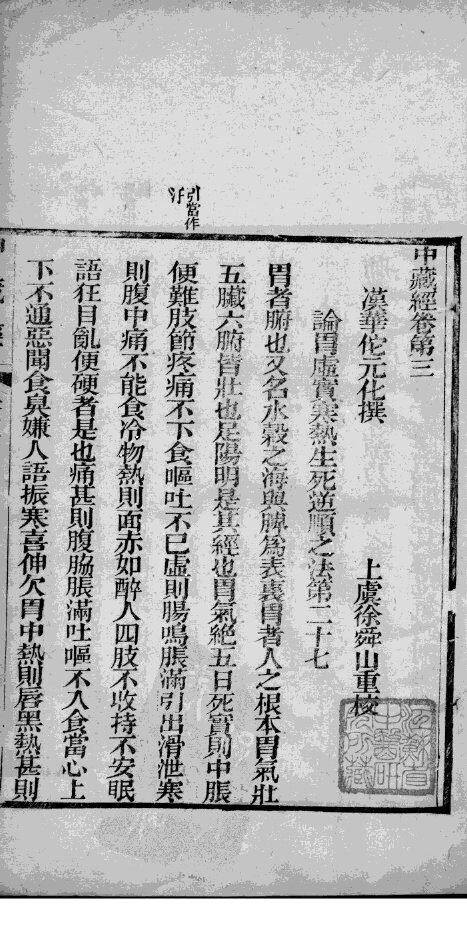 中藏經卷第三
漢華佗元化撰　上虞徐舜山重校
論胃虛實寒熱生死逆順之法第二十七
胃者腑也又名水穀之海與脾爲表裏胃者人之根本胃氣壯
五臟六腑皆壯也足陽明是其經也胃氣絕五日死實則中脹
便難肢節疼痛不下食嘔吐不已虛則腸鳴脹滿引出滑泄寒
則腹中痛不能食冷物熱則面赤如醉人四肢不收持不安眠
語狂目亂便硬者是也痛甚則腹脇脹滿吐嘔不入食當心上
下不通惡聞食臭嫌人語振寒喜伸欠胃中熱則唇黑熱甚則
引當作
汗
中醫研
究所藏